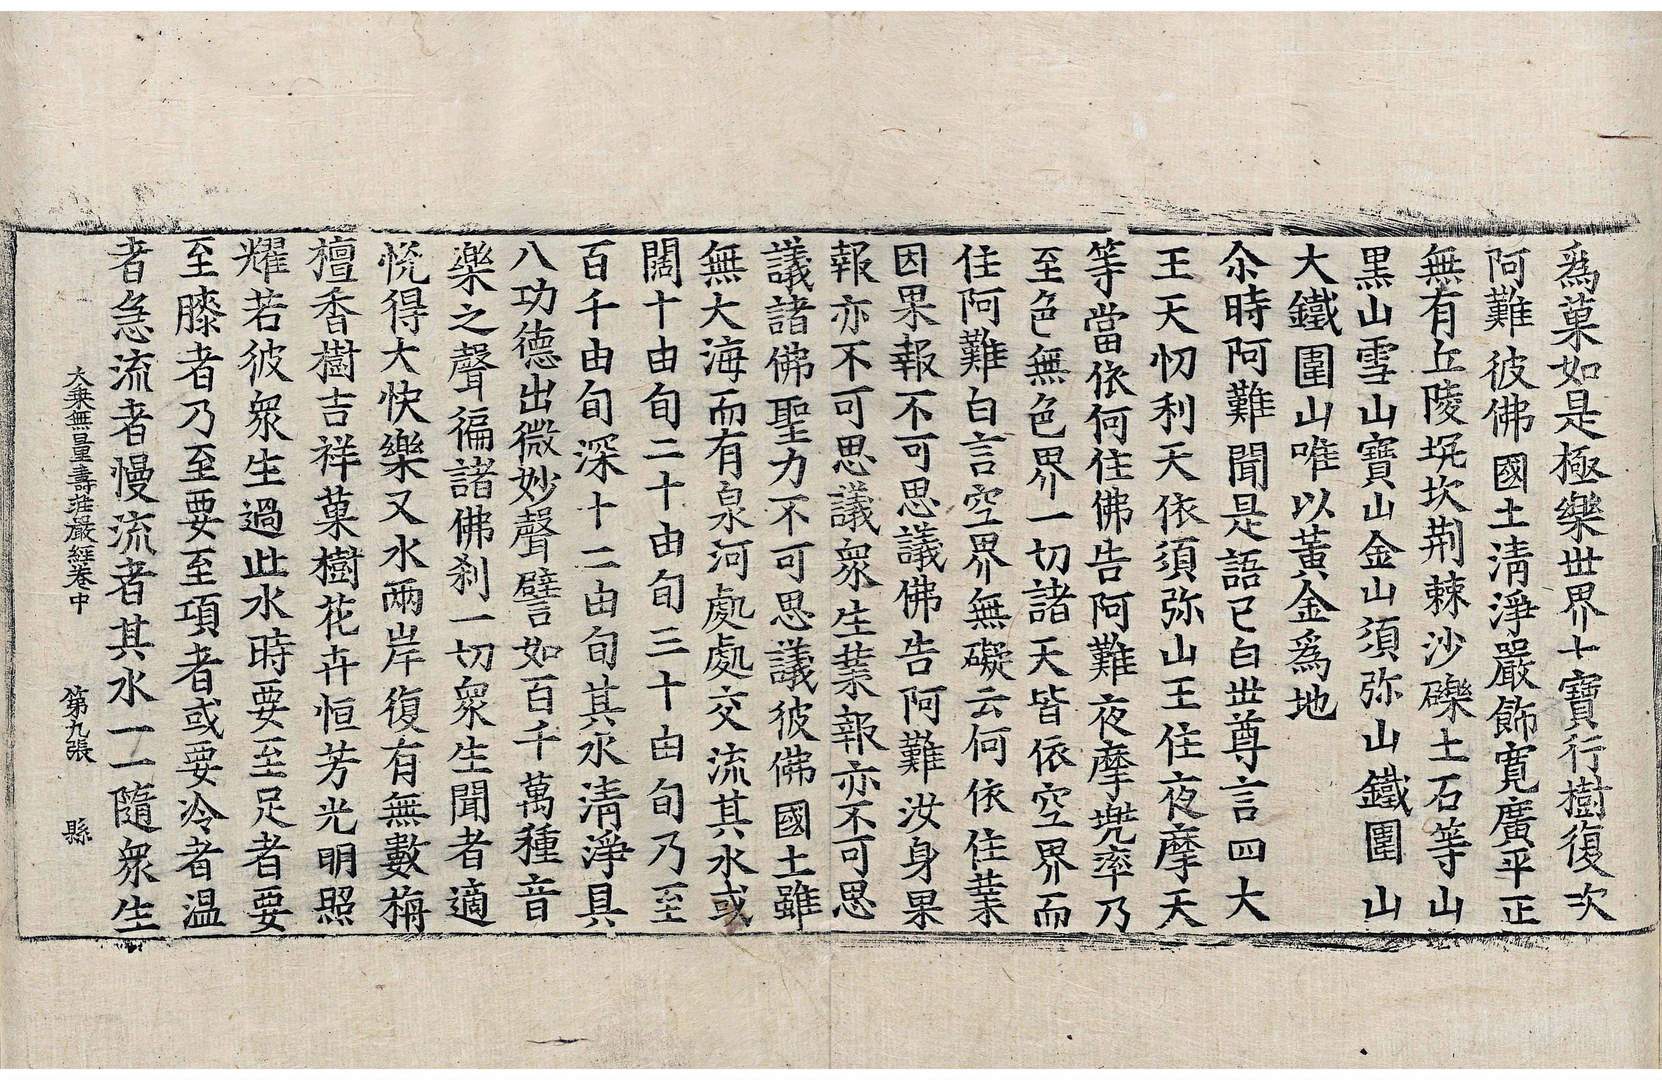 爲菓如是極樂世界七寶行樹復次
阿難彼佛國土清淨嚴飾寬廣平正
無有丘陵坑坎荆棘沙礫土石等山
黒山雪山寶山金山須弥山鐵圍山
大鐵圍山唯以黃金爲地
尒時阿難聞是語已白世尊言四大
王天忉利天依須弥山王住夜摩天
等當依何住佛告阿難夜摩兠率乃
至色無色界一切諸天皆依空界而
住阿難白言空界無礙云何依住業
因果報不可思議佛告阿難汝身果
報亦不可思議衆生業報亦不可思
議諸佛聖力不可思議彼佛國土雖
無大海而有泉河處處交流其水或
闊十由旬二十由旬三十由旬乃至
百千由旬深十二由旬其水清淨具
八功德出微妙聲譬如百千萬種音
樂之聲徧諸佛刹一切衆生聞者適
悅得大快樂又水兩岸復有無數栴
檀香樹吉祥菓樹花卉恒芳光明照
耀若彼衆生過此水時要至足者要
至膝者乃至要至項者或要冷者温
者急流者慢流者其水一一隨衆生
大乗無量壽莊嚴經卷中 第九張 縣